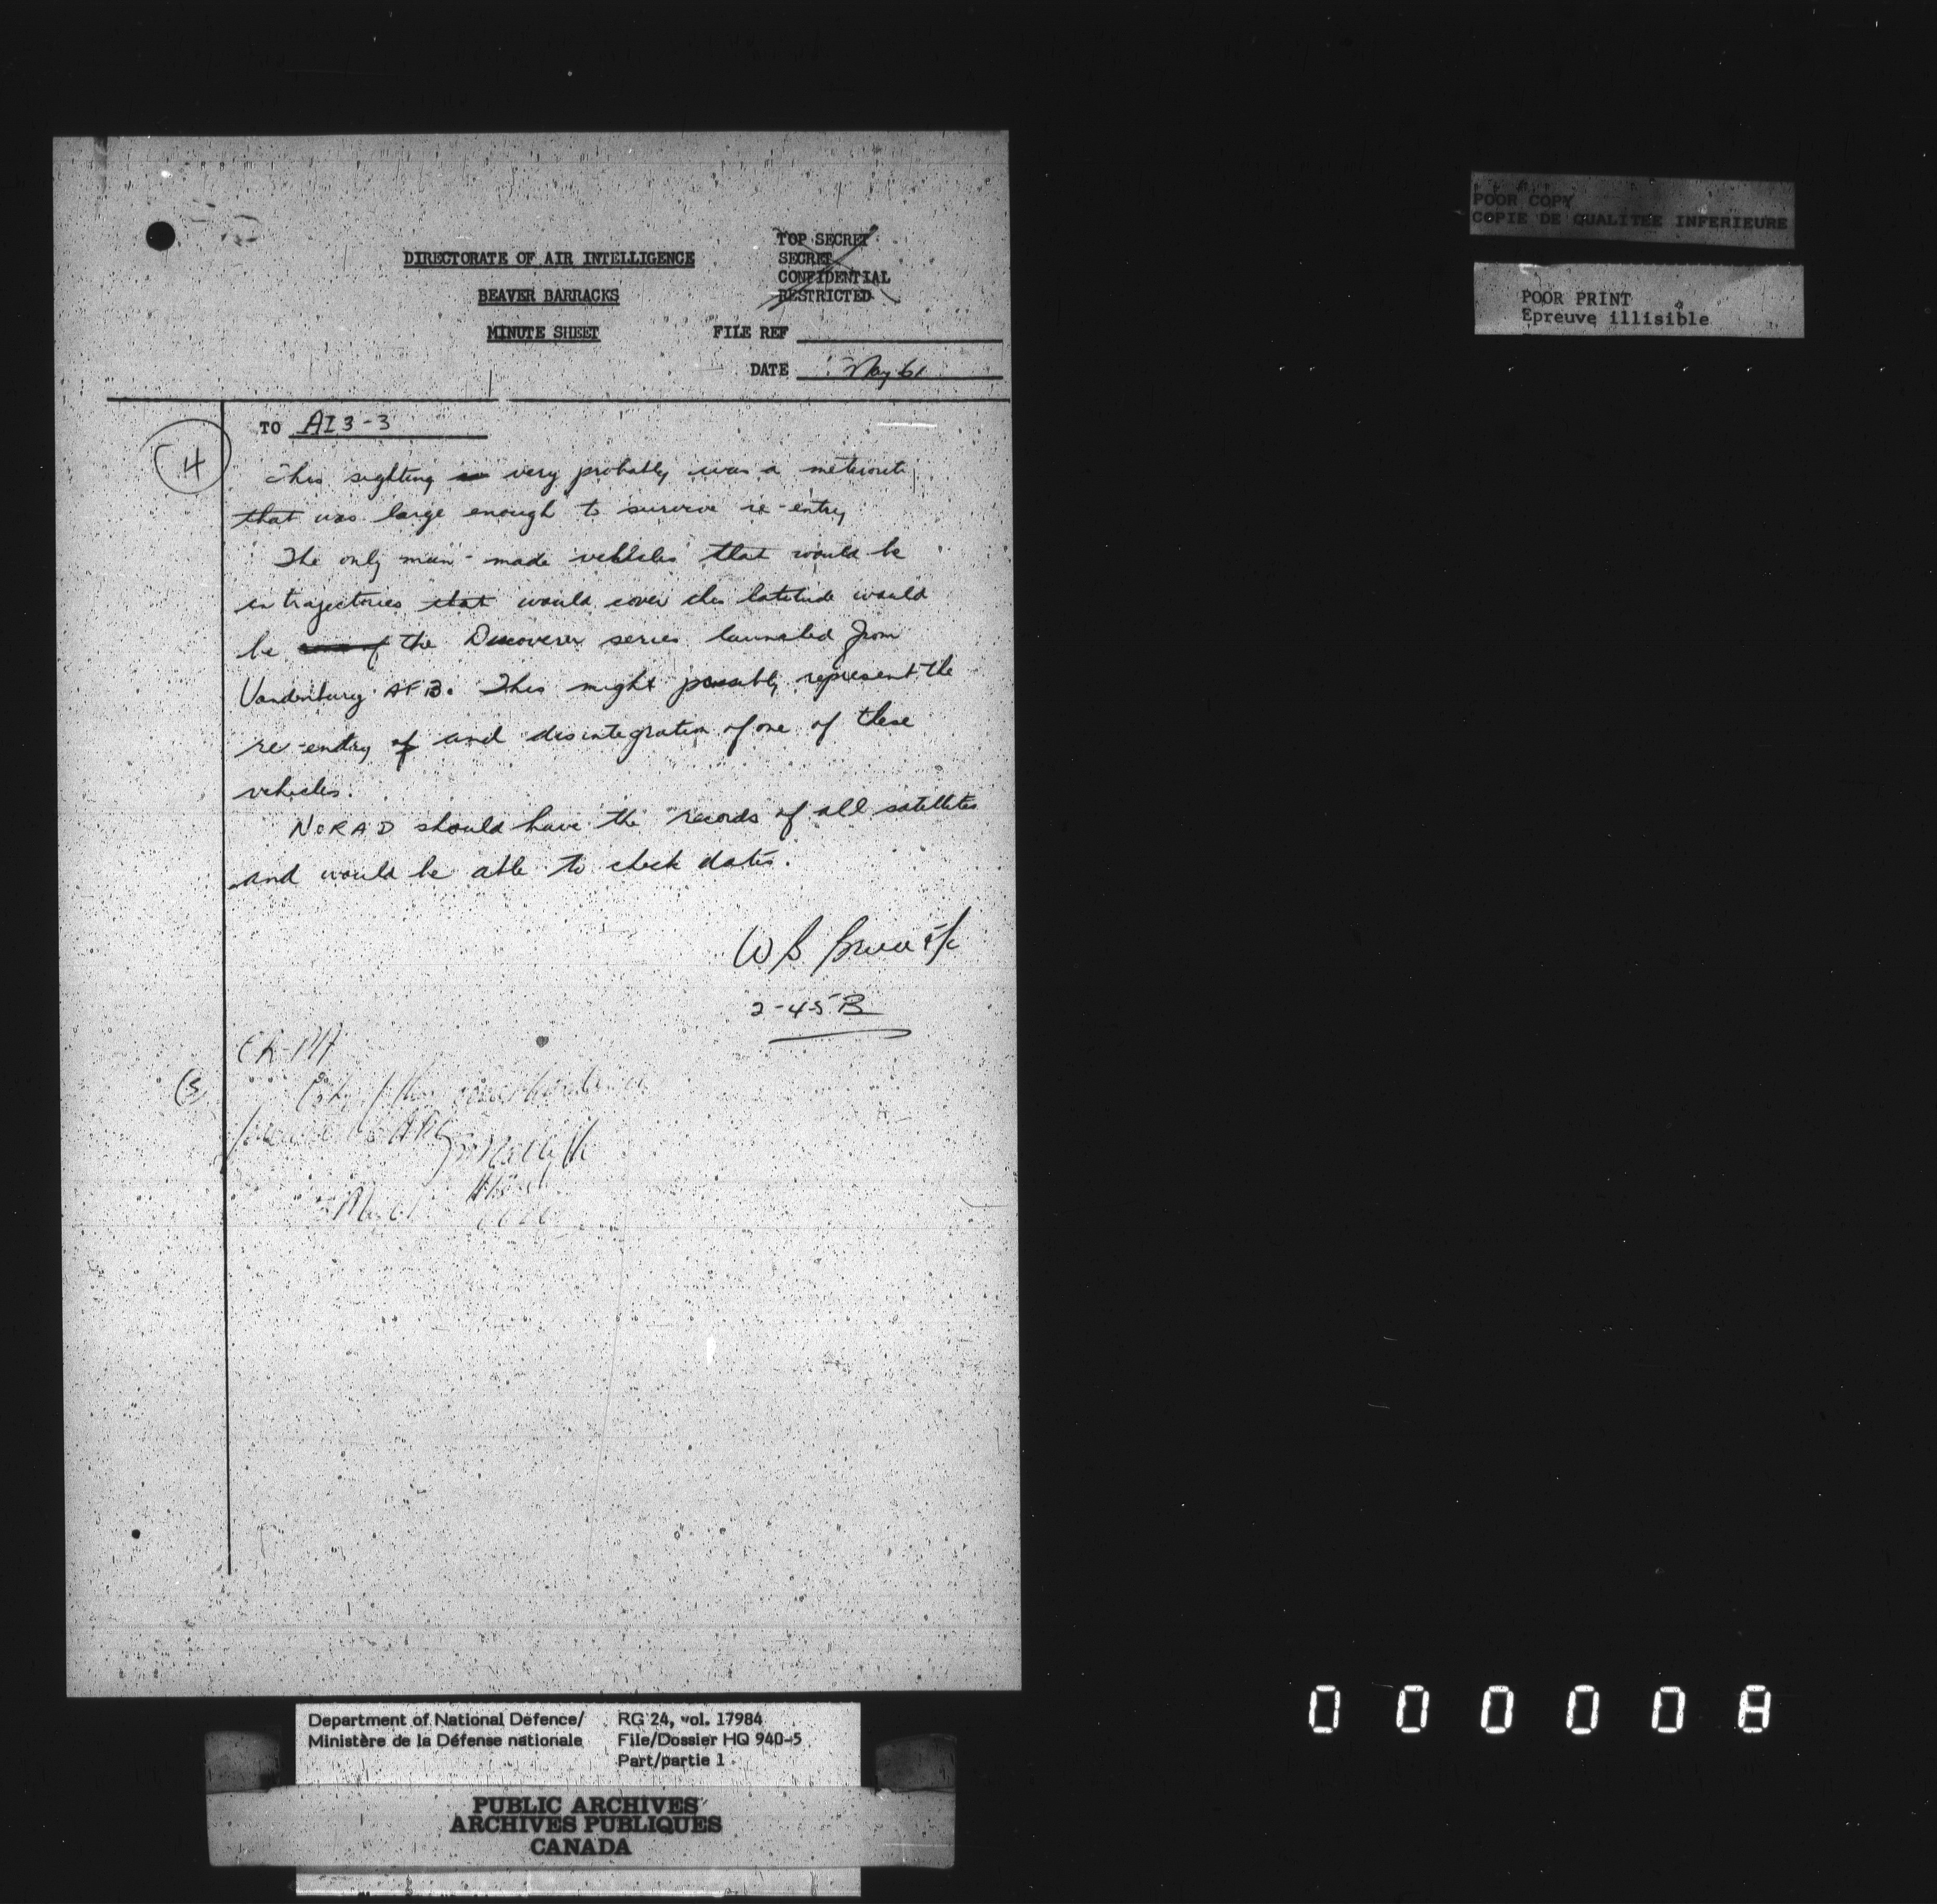 POOR COPY
COPIE DE QUALITEE INFERIEURE
POOR PRINT
Epreuve illisible
TOP SECRET
SECRET
CONFIDENTIAL
RESTRICTED
DIRECTORATE OF AIR INTELLIGENCE
BEAVER BARRACKS
MINUTE SHEET
FILE REF
DATE May 61
TO AI 3-3
4
This sighting very probably was a meteorite
that was large enough to survive re-entry
The only man-made vehicles that would be
in trajectories that would cover this latitude would
be the Discoverer series launched from
Vandenburg AFB. This might possibly represent the
re-entry and disintegration of one of these
vehicles.
NORAD should have the records of all satellites
and would be able to check dates.
W B
2-45B
(5)
Department of National Defence/
Ministère de la Défense nationale
RG 24, vol. 17984
File/Dossier HQ 940-5
Part/partie 1
PUBLIC ARCHIVES
ARCHIVES PUBLIQUES
CANADA
000008